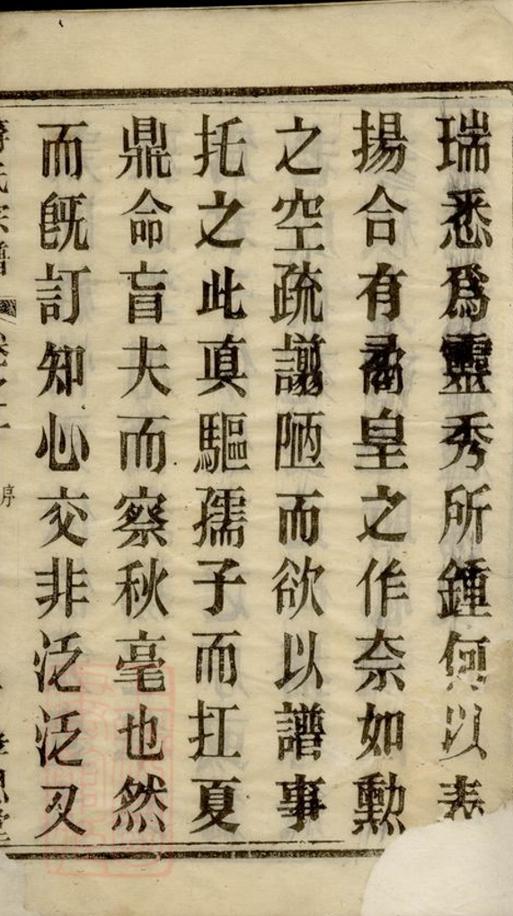 瑞悉爲靈秀所鍾何以表
揚合有矞皇之作奈如勲
之空疏謭陋而欲以譜事
托之此真驅孺子而扛夏
鼎命盲夫而察秋毫也然
而既訂知心交非泛泛又
氏宗譜
序